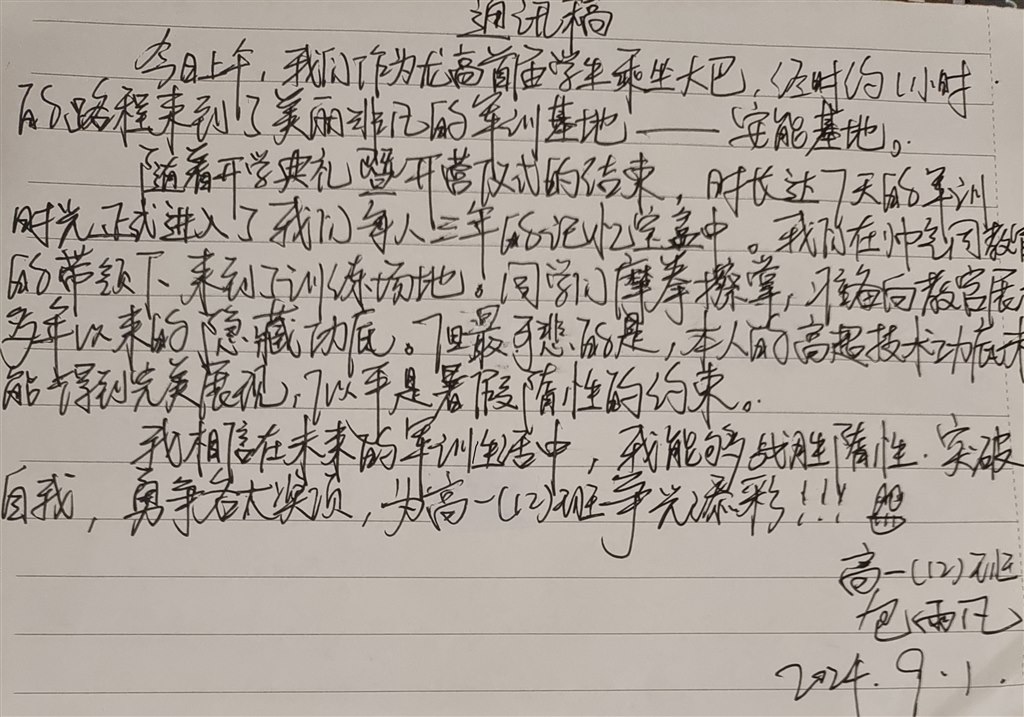 通讯稿
今日上午，我们作为龙高首届学生乘坐大巴，经时约1小时
的路程来到了美丽非凡的军训基地——安能基地。
随着开学典礼暨开营仪式的结束，时长达7天的军训
时光正式进入了我们每人三年的记忆宝盒中。我们在帅气同教官
的带领下，来到了训练场地。同学们摩拳擦掌，准备向教官展
多年以来的隐藏功底。但最可悲的是，本人的高超技术功底未
能得到完美展现，以乎是暑假隋性的约束。
我相信在未来的军训生活中，我能够战胜隋性，突破
自我，勇争各大奖项，为高一(12)班争光添彩!!!
高一(12)班
包雨凡
2024.9.1.